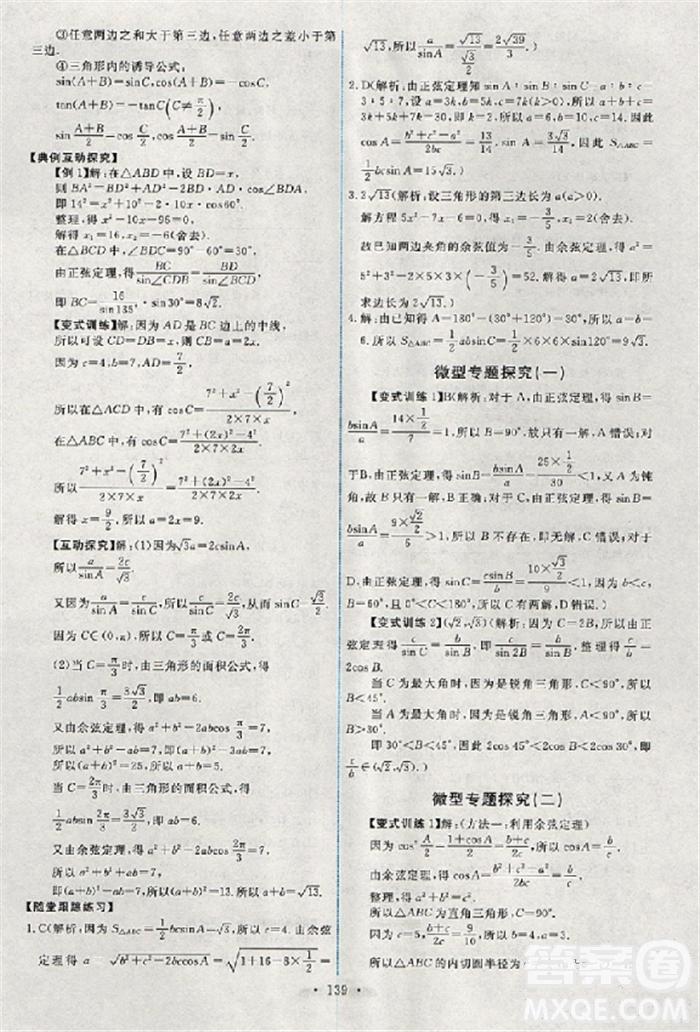 ③任意两边之和大于第三边,任意两边之差小于第
三边.
④三角形内的诱导公式:
sin(A+B)=sinC,cos(A+B)=-cosC,
tan(A+B)=-tanC(C≠π/2),
sin (A+B)/2=cos C/2,cos (A+B)/2=sin C/2.
【典例互动探究】
【例 1】解:在△ABD 中,设 BD=x,
则 BA²=BD²+AD²-2BD·AD·cos∠BDA,
即 14²=x²+10²-2·10x·cos60°,
整理,得 x²-10x-96=0,
解得 x₁=16,x₂=-6(舍去).
在△BCD 中,∠BDC=90°-60°=30°,
由正弦定理得 BC/sin∠CDB=BD/sin∠BCD,
即 BC=16/sin135°·sin30°=8√2.
【变式训练】解:因为 AD 是 BC 边上的中线,
所以可设 CD=DB=x,所以 CB=a=2x.
因为 c=4,b=7,AD=7/2,
所以在△ACD 中,有 cosC=(7²+x²-(7/2)²)/(2×7×x),
在△ABC 中,有 cosC=(7²+(2x)²-4²)/(2×7×2x).
所以(7²+x²-(7/2)²)/(2×7×x)=(7²+(2x)²-4²)/(2×7×2x),
解得 x=9/2,所以 a=2x=9.
【互动探究】解:(1)因为√3a=2csinA,
所以 a/sinA=2c/√3,
又因为 a/sinA=c/sinC,所以 c/sinC=2c/√3,从而 sinC=√3/2.
因为 C∈(0,π),所以 C=π/3或2π/3.
(2)当 C=π/3时,由三角形的面积公式,得
1/2absin π/3=3√3/2,所以 ab=6.
又由余弦定理得 a²+b²-2abcos π/3=7,
所以 a²+b²-ab=7,
所以(a+b)²=25,所以 a+b=5.
当 C=2π/3时,由三角形的面积公式,得
1/2absin 2π/3=3√3/2,所以 ab=6.
又由余弦定理得 a²+b²-2abcos 2π/3=7,
所以 a²+b²+ab=7,
即(a+b)²=ab+7=13,所以 a+b=√13.
【随堂跟踪练习】
1.C(解析:因为 S△ABC=1/2bcsinA=√3,所以 c=4.由余弦
定理得 a=√(b²+c²-2bccosA)=√(1+16-8×1/2)=
√13,所以
=2√39/3.)
2.D(解析:由正弦定理知 sinA∶sinB∶sinC=a∶b∶c=
3∶5∶7,所以设 a=3k,b=5k,c=7k(k>0),所以 a+b+c=
15k=30,所以 k=2,所以 a=6,b=10,c=14.所以
cosA=(b²+c²-a²)/2bc=13/14,sinA=3√3/14,所以 S△ABC=
1/2bcsinA=15√3.)
3.2√13(解析:设三角形的第三边长为 a(a>0).
解方程 5x²-7x-6=0,得 x₁=2,x₂=-3/5(舍去).
故已知两边夹角的余弦值为-3/5,由余弦定理,得 a²=
5²+3²-2×5×3×(-3/5)=52.所以 a=2√13,即所
求边长为 2√13.)
4.解:由已知得 A=180°-(30°+120°)=30°,所以 a=b=
6.所以 S△ABC=1/2absinC=1/2×6×6×sin120°=9√3.
微型专题探究(一)
【变式训练 1】B(解析:对于 A,由正弦定理,得 sinB=
bsinA/a=(14×1/2)/7=1,所以 B=90°.故只有一解,A 错误;对
于B,由正弦定理,得 sinB=bsinA/a=(25×1/2)/30<1,又 A 为钝
角,故 B 只有一解,B 正确;对于 C,由正弦定理,得 sinB=
bsinA/a=(9×√2/2)/6>1,所以 B 不存在,故 C 错误;对于
D,由正弦定理,得 sinC=csinB/b=(10×√3/2)/9<1,因为 b<c,
B=60°,所以 60°<C<180°,所以 C 有两解,D 错误.)
【变式训练 2】(√2,√3)(解析:因为 C=2B,所以由正
弦定理得c/sinC=b/sinB,所以c/b=sinC/sinB=sin2B/sinB=
2cosB.
当 C 为最大角时,因为是锐角三角形,C<90°,所以
B<45°.
当 A 为最大角时,因为是锐角三角形,A<90°,所以
B>30°.
即 30°<B<45°,所以 2cos45°<2cosB<2cos30°,所以
c/b∈(√2,√3).)
微型专题探究(二)
【变式训练 1】解:(方法一:利用余弦定理)
因为 cos² A/2=(1+cosA)/2=(b+c)/2c,所以 cosA=b/c,
又因为 cosA=(b²+c²-a²)/2bc,所以(b²+c²-a²)/2bc=b/c,
整理,得 a²+b²=c²,
所以△ABC 为直角三角形,C=90°.
答案圈
MXQE.COM
· 139 ·